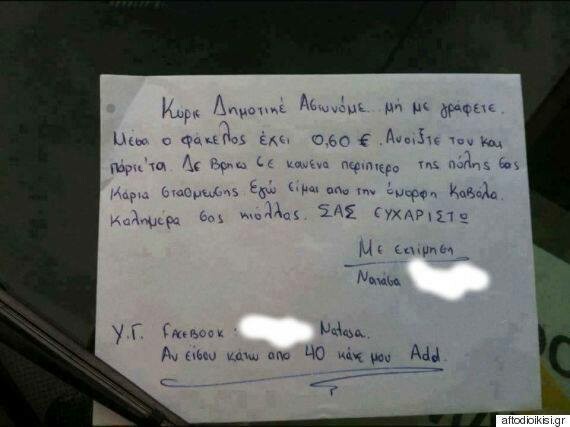 Κύριε Δημοτικέ Αστυνόμε... μή με γράφετε.
Μέσα ο φάκελος έχει 0,60 €. Ανοιξτε τον και
πάρτε'τα. Δε βρηκα σε κανένα περίπτερο της πόλης σας
κάρτα στάθμευσης Εγώ είμαι απο την όμορφη Καβάλα.
Καλημέρα σας κιόλλας. ΣΑΣ ΕΥΧΑΡΙΣΤΩ
Με εκτίμηση
Νατάσα
Υ.Γ. FACEBOOK: Natasa.
Αν είσαι κάτω απο 40 κάνε μου Add.
aftodioikisi.gr